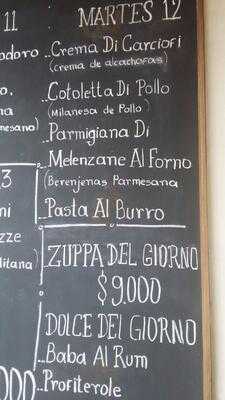 11
MARTES 12
odoro
..Crema Di Carciofi
(crema de alcachofas)
o.
..Cotoletta Di Pollo
na
(Milanesa de Pollo)
mesano)
..Parmigiana Di
Melenzane Al Forno
3
(Berenjenas Parmesana
ni
..Pasta Al Burro
zze
litana)
ZUPPA DEL GIORNO
$9.000
DOLCE DEL GIORNO
..Baba Al Rum
000
..Profiterole